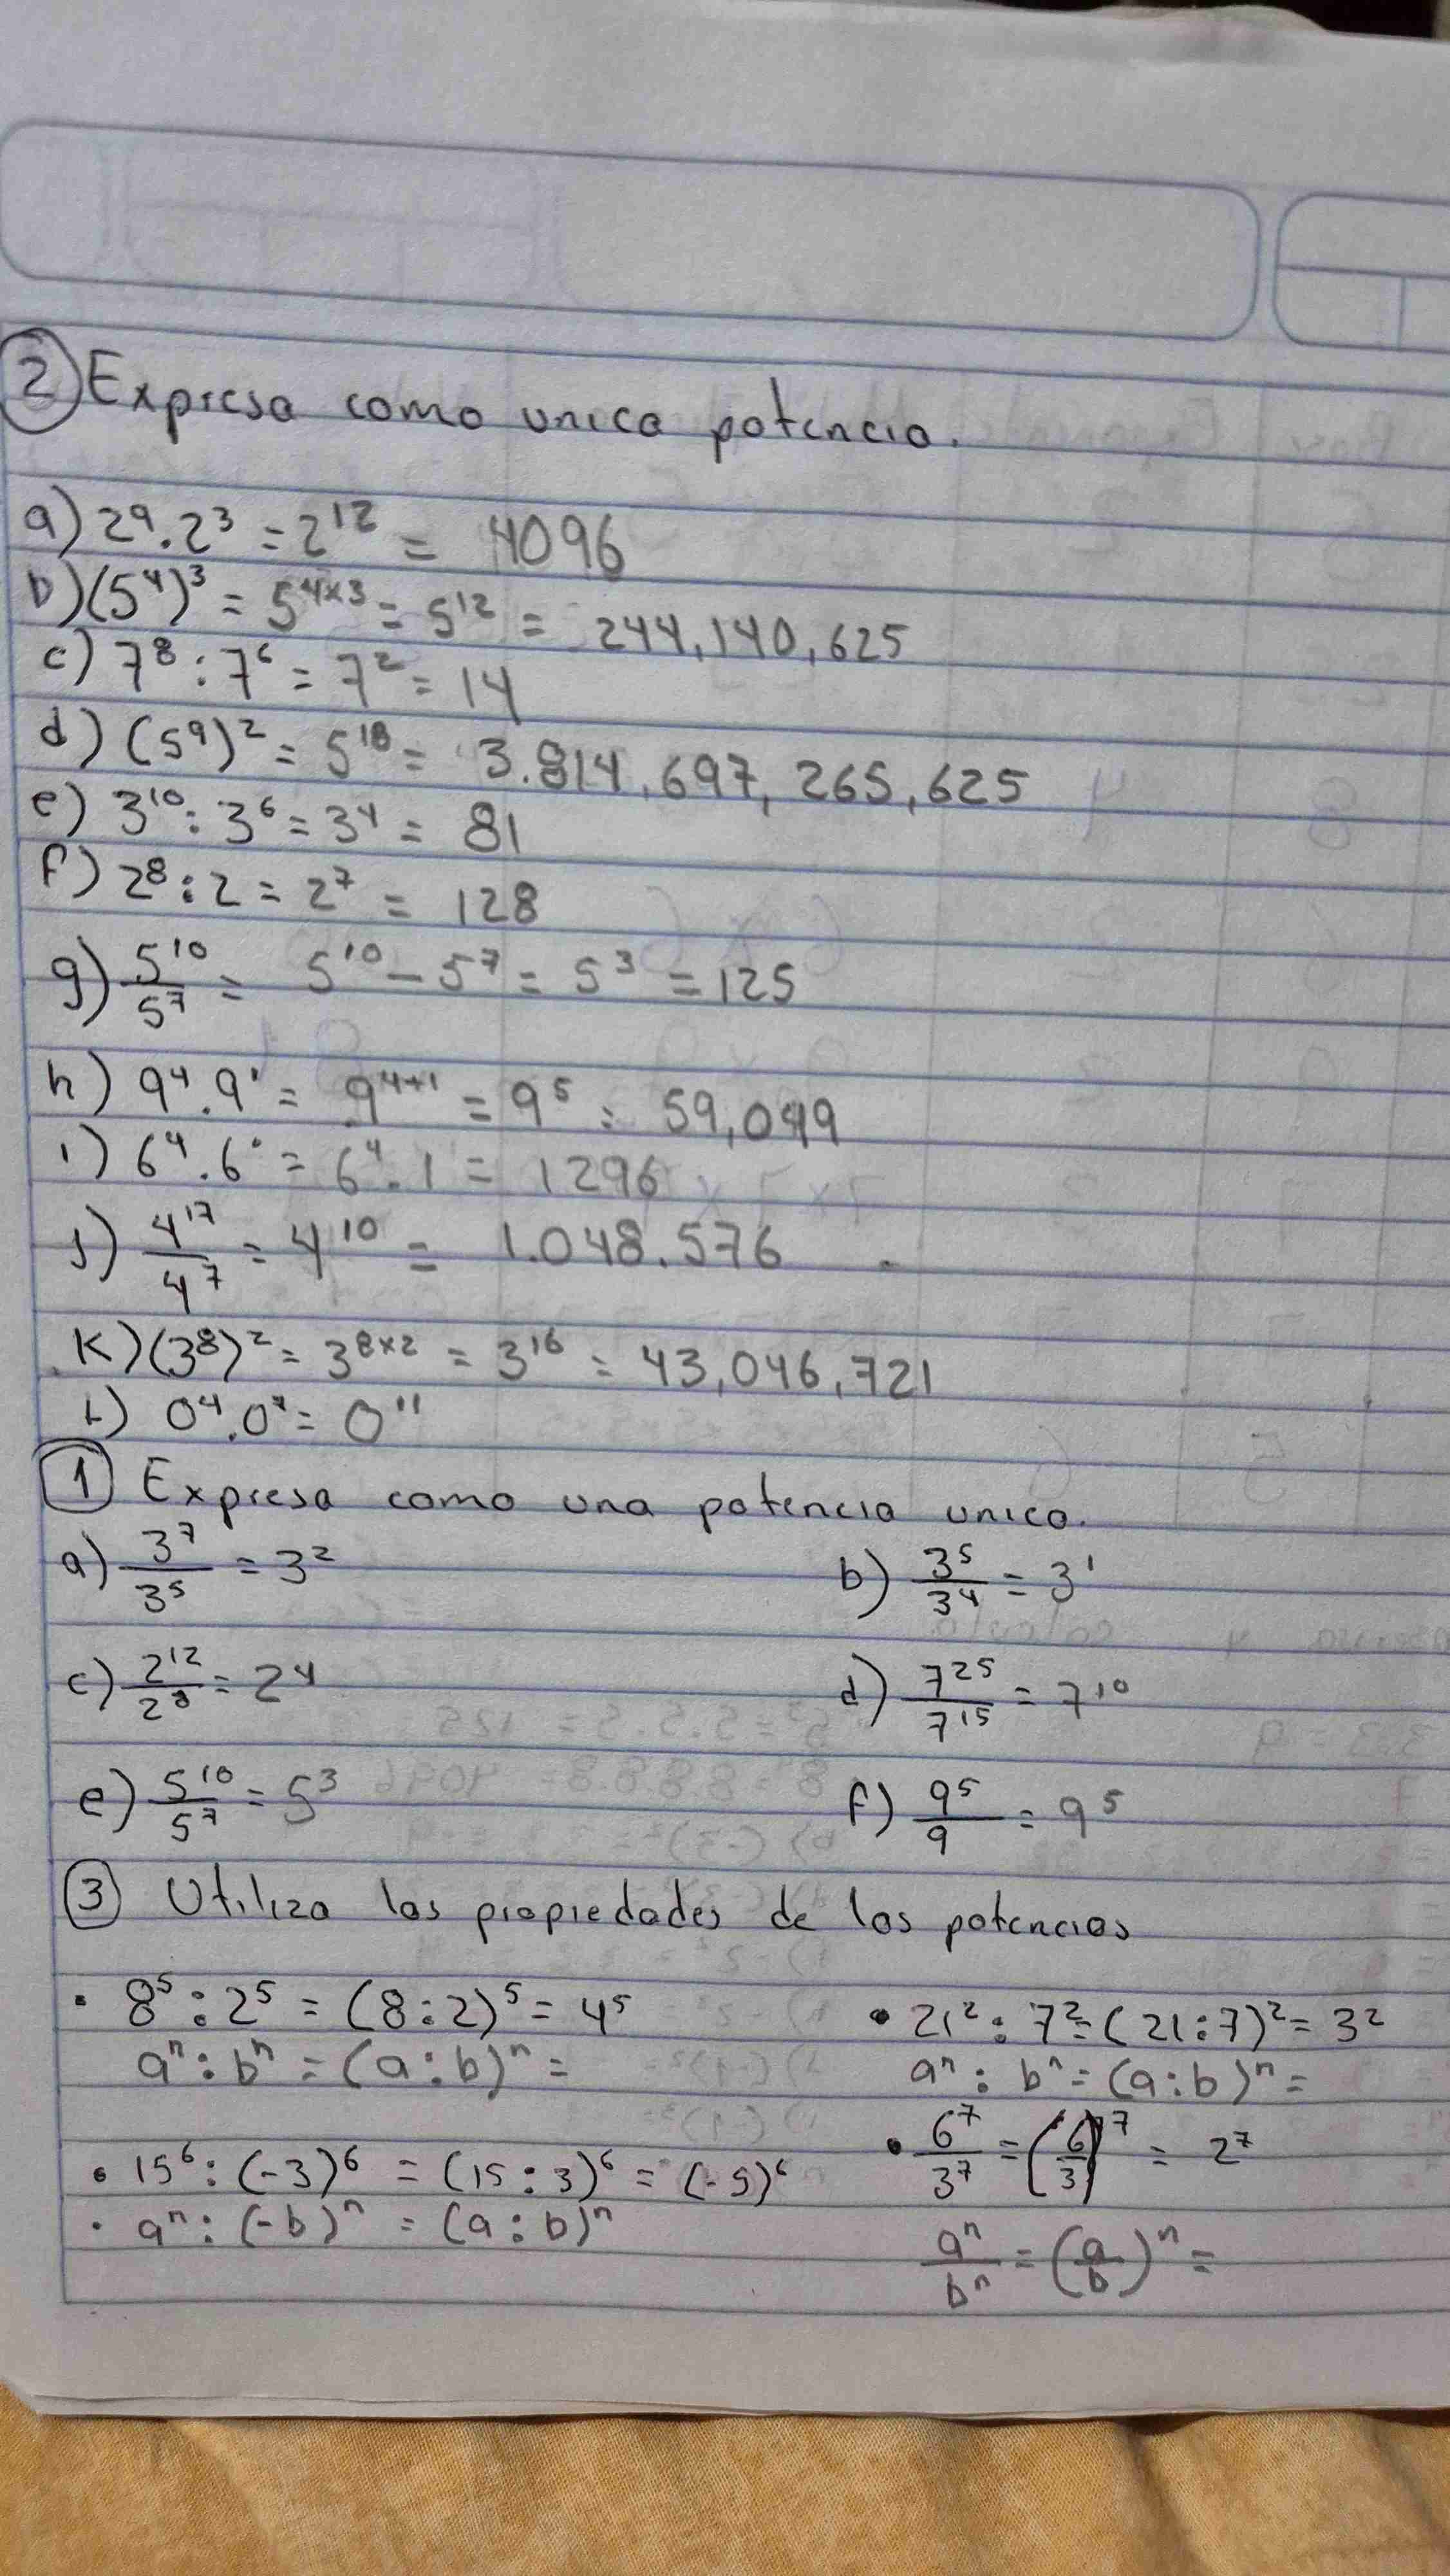 2 Expresa como unica potencia.
a) 2⁹.2³ = 2¹² = 4096
b) (5⁴)³ = 5⁴ˣ³ = 5¹² = 244,140,625
c) 7⁸ : 7⁶ = 7² = 14
d) (5⁹)² = 5¹⁸ = 3.814,697,265,625
e) 3¹⁰ : 3⁶ = 3⁴ = 81
f) 2⁸ : 2 = 2⁷ = 128
g) 5¹⁰/5⁷ = 5¹⁰ - 5⁷ = 5³ = 125
h) 9⁴.9¹ = 9⁴⁺¹ = 9⁵ = 59,049
i) 6⁴.6⁰ = 6⁴.1 = 1296
j) 4¹⁷/4⁷ = 4¹⁰ = 1.048.576
K) (3⁸)² = 3⁸ˣ² = 3¹⁶ = 43,046,721
L) 0⁴.0⁷ = 0¹¹
1 Expresa como una potencia unica.
a) 3⁷/3⁵ = 3² b) 3⁵/3⁴ = 3¹
c) 2¹²/2⁸ = 2⁴ d) 7²⁵/7¹⁵ = 7¹⁰
e) 5¹⁰/5⁷ = 5³ f) 9⁵/9 = 9⁵
3 Utiliza las propiedades de las potencias
• 8⁵ : 2⁵ = (8 : 2)⁵ = 4⁵ • 21² : 7² = (21 : 7)² = 3²
aⁿ : bⁿ = (a : b)ⁿ = aⁿ : bⁿ = (a : b)ⁿ =
• 15⁶ : (-3)⁶ = (15 : 3)⁶ = (-5)⁶ • 6⁷/3⁷ = (6/3)⁷ = 2⁷
• aⁿ : (-b)ⁿ = (a : b)ⁿ aⁿ/bⁿ = (a/b)ⁿ =